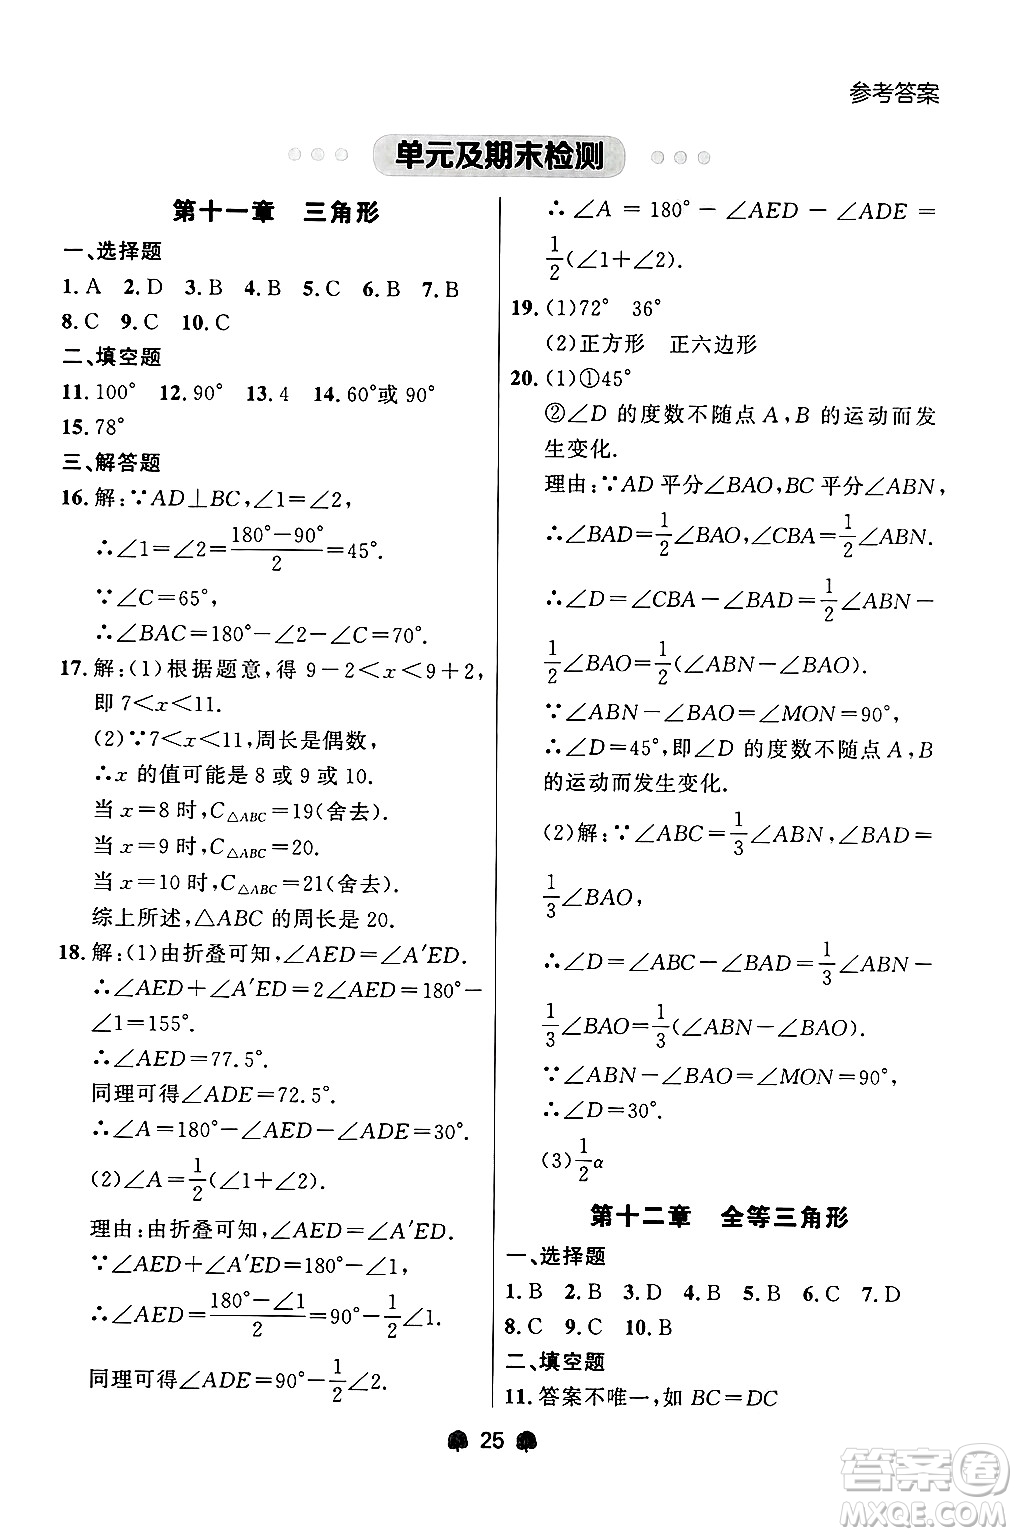 参考答案
单元及期末检测
第十一章 三角形
一、选择题
1. A 2. D 3. B 4. B 5. C 6. B 7. B
8. C 9. C 10. C
二、填空题
11. 100° 12. 90° 13. 4 14. 60°或 90°
15. 78°
三、解答题
16. 解:∵AD⊥BC,∠1=∠2,
∴∠1=∠2=(180°-90°)/2=45°.
∵∠C=65°,
∴∠BAC=180°-∠2-∠C=70°.
17. 解:(1)根据题意,得 9-2<x<9+2,
即 7<x<11.
(2)∵7<x<11,周长是偶数,
∴x 的值可能是 8 或 9 或 10.
当 x=8 时,C△ABC=19(舍去).
当 x=9 时,C△ABC=20.
当 x=10 时,C△ABC=21(舍去).
综上所述,△ABC 的周长是 20.
18. 解:(1)由折叠可知,∠AED=∠A′ED.
∴∠AED+∠A′ED=2∠AED=180°-
∠1=155°.
∴∠AED=77.5°.
同理可得∠ADE=72.5°.
∴∠A=180°-∠AED-∠ADE=30°.
(2)∠A=1/2(∠1+∠2).
理由:由折叠可知,∠AED=∠A′ED.
∵∠AED+∠A′ED=180°-∠1,
∴∠AED=(180°-∠1)/2=90°-1/2∠1.
同理可得∠ADE=90°-1/2∠2.
∴∠A=180°-∠AED-∠ADE=
1/2(∠1+∠2).
19. (1)72° 36°
(2)正方形 正六边形
20. (1)①45°
②∠D 的度数不随点 A,B 的运动而发
生变化.
理由:∵AD 平分∠BAO,BC 平分∠ABN,
∴∠BAD=1/2∠BAO,∠CBA=1/2∠ABN.
∴∠D=∠CBA-∠BAD=1/2∠ABN-
1/2∠BAO=1/2(∠ABN-∠BAO).
∵∠ABN-∠BAO=∠MON=90°,
∴∠D=45°,即∠D 的度数不随点 A,B
的运动而发生变化.
(2)解:∵∠ABC=1/3∠ABN,∠BAD=
1/3∠BAO,
∴∠D=∠ABC-∠BAD=1/3∠ABN-
1/3∠BAO=1/3(∠ABN-∠BAO).
∵∠ABN-∠BAO=∠MON=90°,
∴∠D=30°.
(3)1/2α
第十二章 全等三角形
一、选择题
1. B 2. B 3. D 4. B 5. B 6. C 7. D
8. C 9. C 10. B
二、填空题
11. 答案不唯一,如 BC=DC
25
答案圈
MXQE.COM